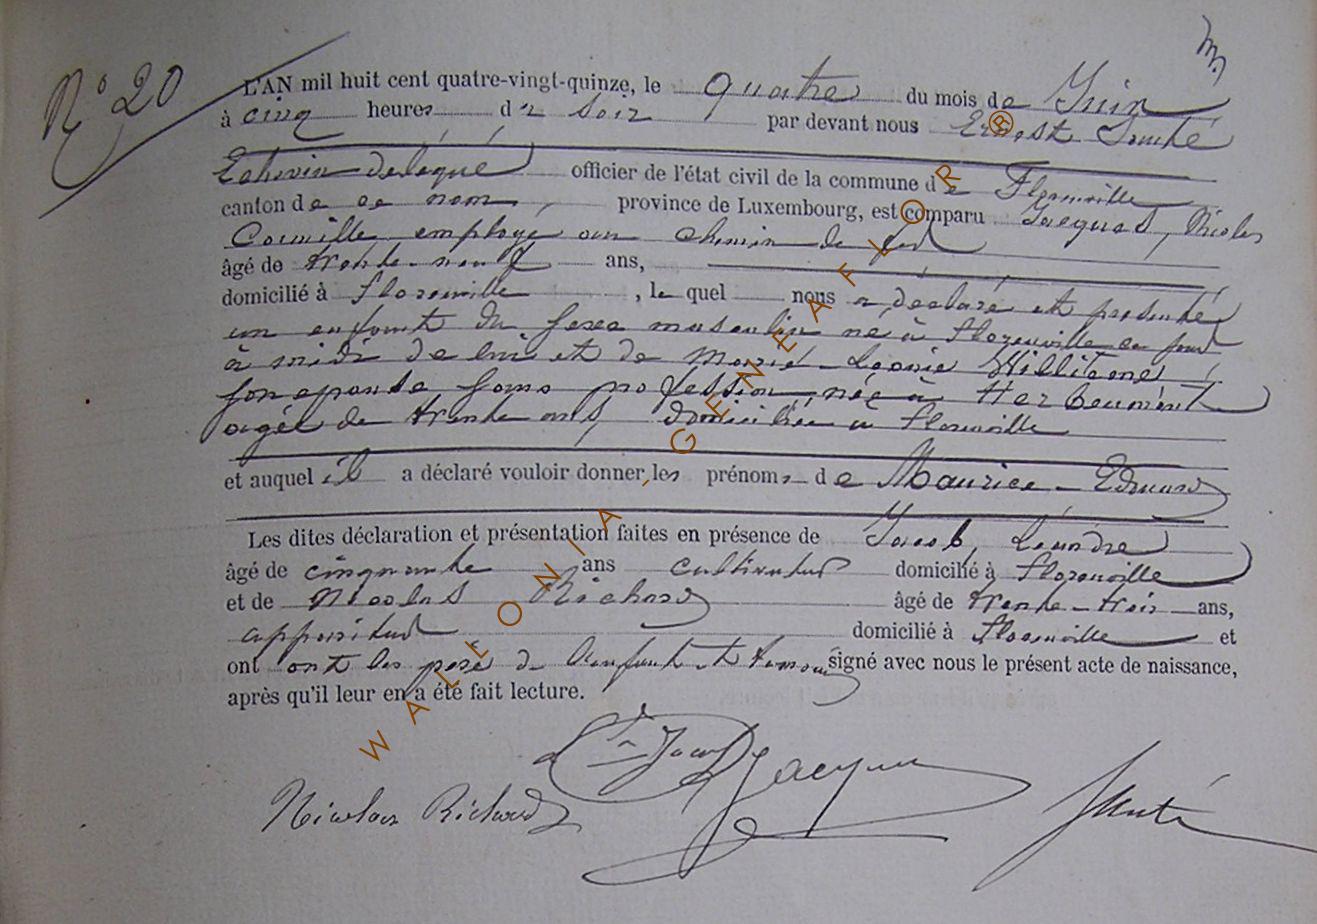 N° 20
m.
L'AN mil huit cent quatre-vingt-quinze, le quatre du mois de Juin
à cinq heures du soir par devant nous Ernest
Echevin délégué officier de l'état civil de la commune de Florenville
canton de ce nom, province de Luxembourg, est comparu Jacques, Nicolas
Camille employé au chemin de fer
âgé de trente-neuf ans,
domicilié à Florenville, le quel nous a déclaré et présenté
un enfant du sexe masculin né à Florenville ce jour
à midi de lui et de Marie-Léonie
son épouse sans profession, née à Herbeumont
agée de trente ans, domiciliée à Florenville
et auquel il a déclaré vouloir donner les prénoms de Maurice-Edmond
Les dites déclaration et présentation faites en présence de Jacob, Léandre
âgé de cinquante ans cultivateur domicilié à Florenville
et de Nicolas Richard âgé de trente-trois ans,
appariteur domicilié à Florenville et
ont ont les père de l'enfant et témoins signé avec nous le présent acte de naissance,
après qu'il leur en a été fait lecture.
Jacob Jacques
Nicolas Richard
WALLONIA - GENEAFLOR ®